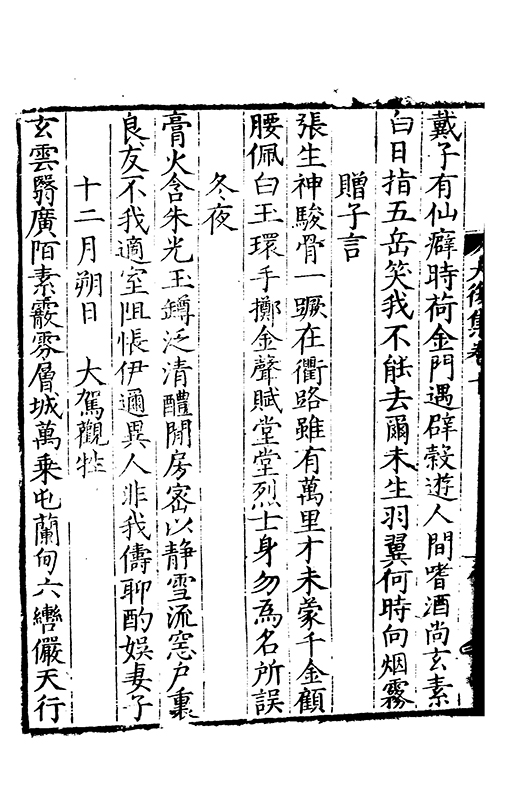 戴子有仙癖時荷金門遇辟穀遊人間嗜酒尚玄素
白日指五岳笑我不能去爾未生羽翼何時向烟霧
贈子言
張生神駿骨一蹶在衢路雖有萬里才未蒙千金顧
腰佩白玉環手擲金聲賦堂堂烈士身勿為名所誤
冬夜
膏火含朱光玉罇泛清醴閒房密以静雪流窓户裏
良友不我適室阻悵伊邇異人非我儔聊酌娛妻子
十二月朔日 大駕觀牲
玄雲翳廣陌素霰雰層城萬乘屯蘭甸六轡儼天行
大復集卷十